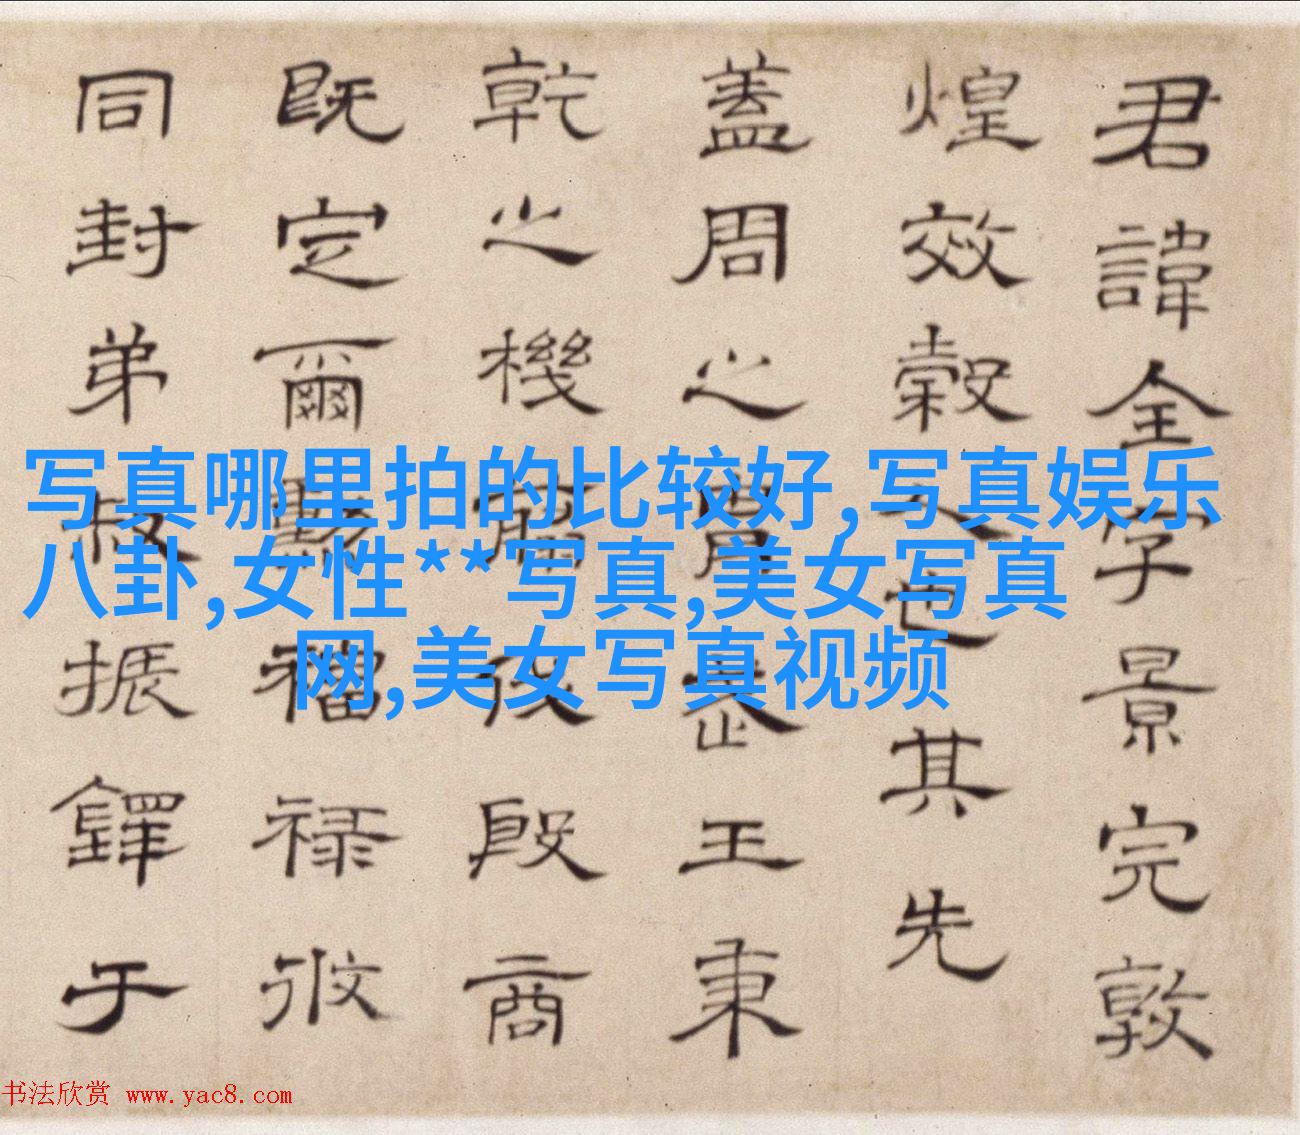 君諱全字景完敦
煌效穀人也其先
蓋周之冑武王秉
乾之機翦伐殷商
既定爾勳福祿攸
同封弟叔振鐸于
写真哪里拍的比较好,写真娱乐
八卦,女性**写真,美女写真
网,美女写真视频
书法欣赏 www.yac8.com